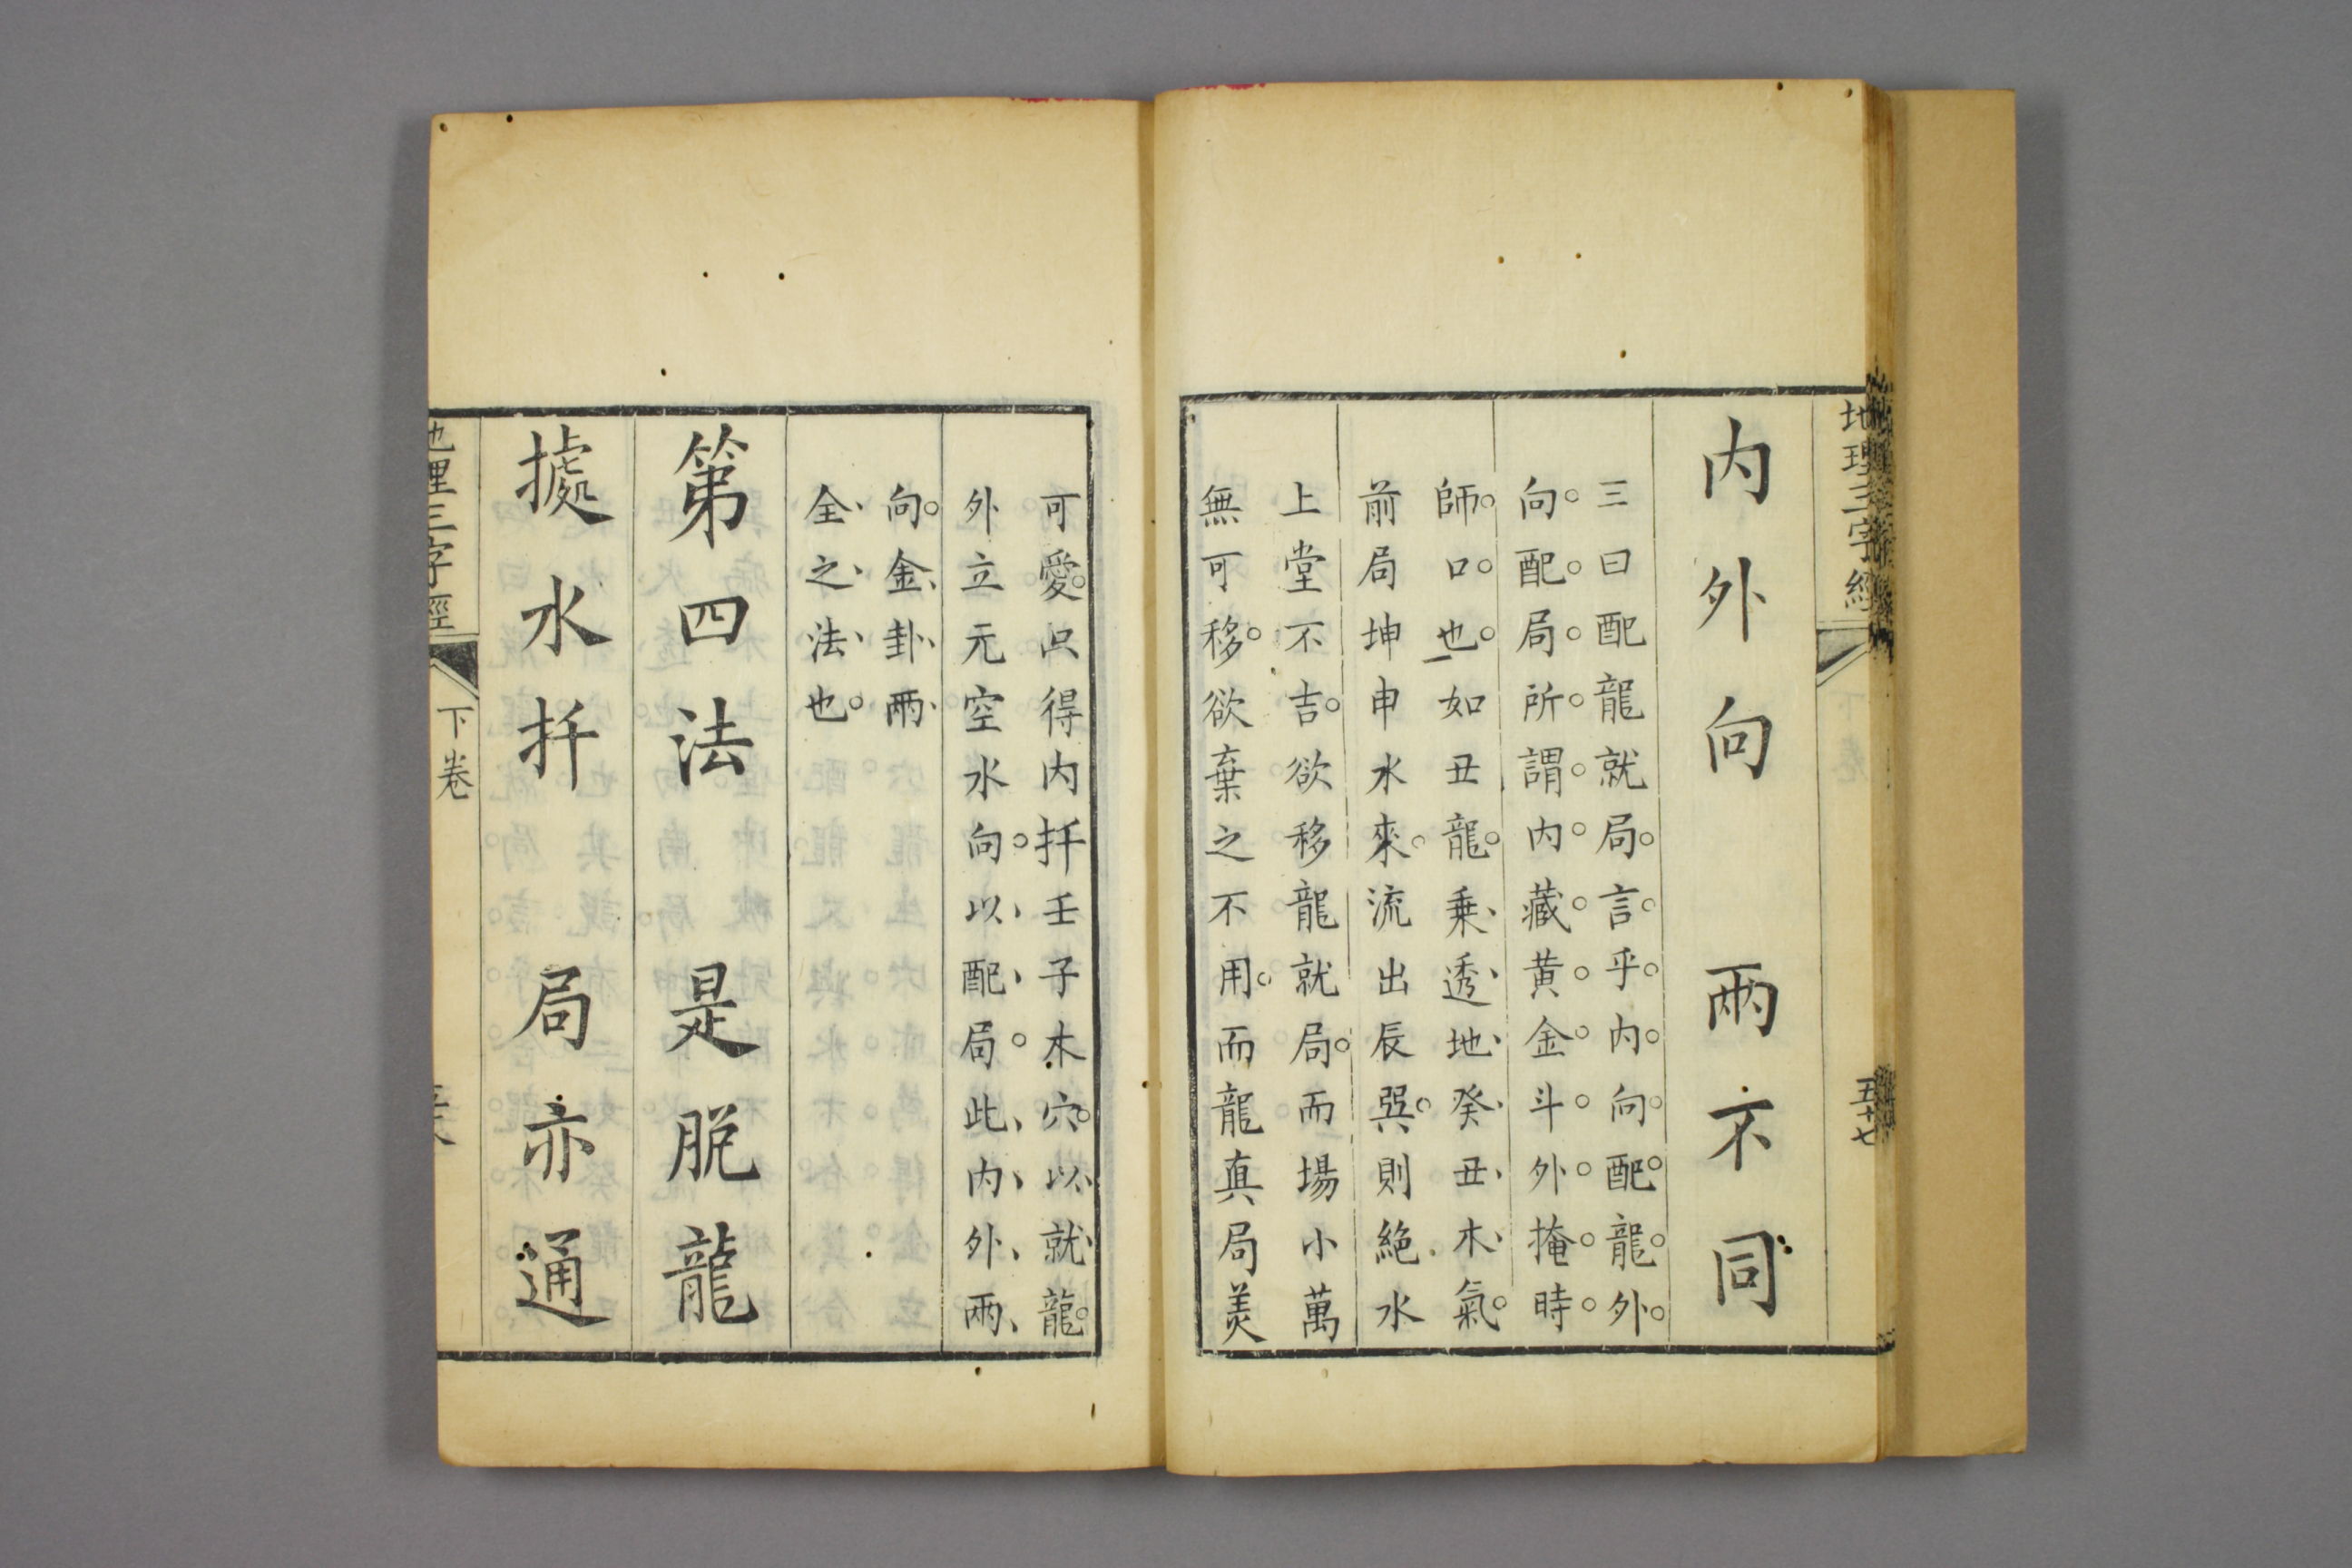 地理三字經
五十七
内外向　兩不同
三曰配龍就局言乎内向配龍外
向配局所謂内藏黄金斗外掩時
師口也如丑龍乗透地癸丑木氣
前局坤申水來流出辰巽則絶水
上堂不吉欲移龍就局而場小萬
無可移欲棄之不用而龍真局美
可愛只得内扦壬子木穴以就龍
外立元空水向以配局此内外兩
向金卦兩
全之法也
第四法　是脱龍
據水扦　局亦通
地理三字經
下卷